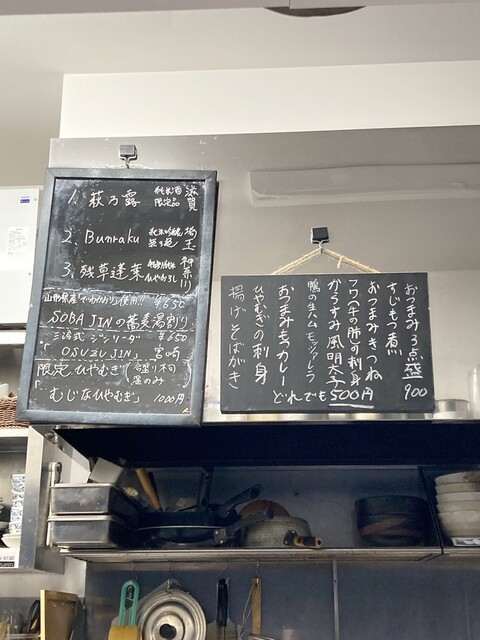 1. 萩乃露 純米酒 限定品 滋賀
2. Bunraku 純米吟醸 埼玉
3. 残草蓬莱 ひやおろし 神奈川
山形県産「でわかおり」使用!! ¥650
SOBA JINの蕎麦湯割り
三浦式 ジンソーダー ¥650
「OSUZU JIN」 宮崎
限定ひやむぎ 昼のみ
「むじなひやむぎ」 1000円
おつまみ3点盛 900
すじもつ煮
おつまみきつね
フワ(牛の肺)の刺身
からすみ風明太子
鴨の生ハムモッツァレラ
おつまみもつカレー
ひやむぎの刺身
揚げそばがき
どれでも500円